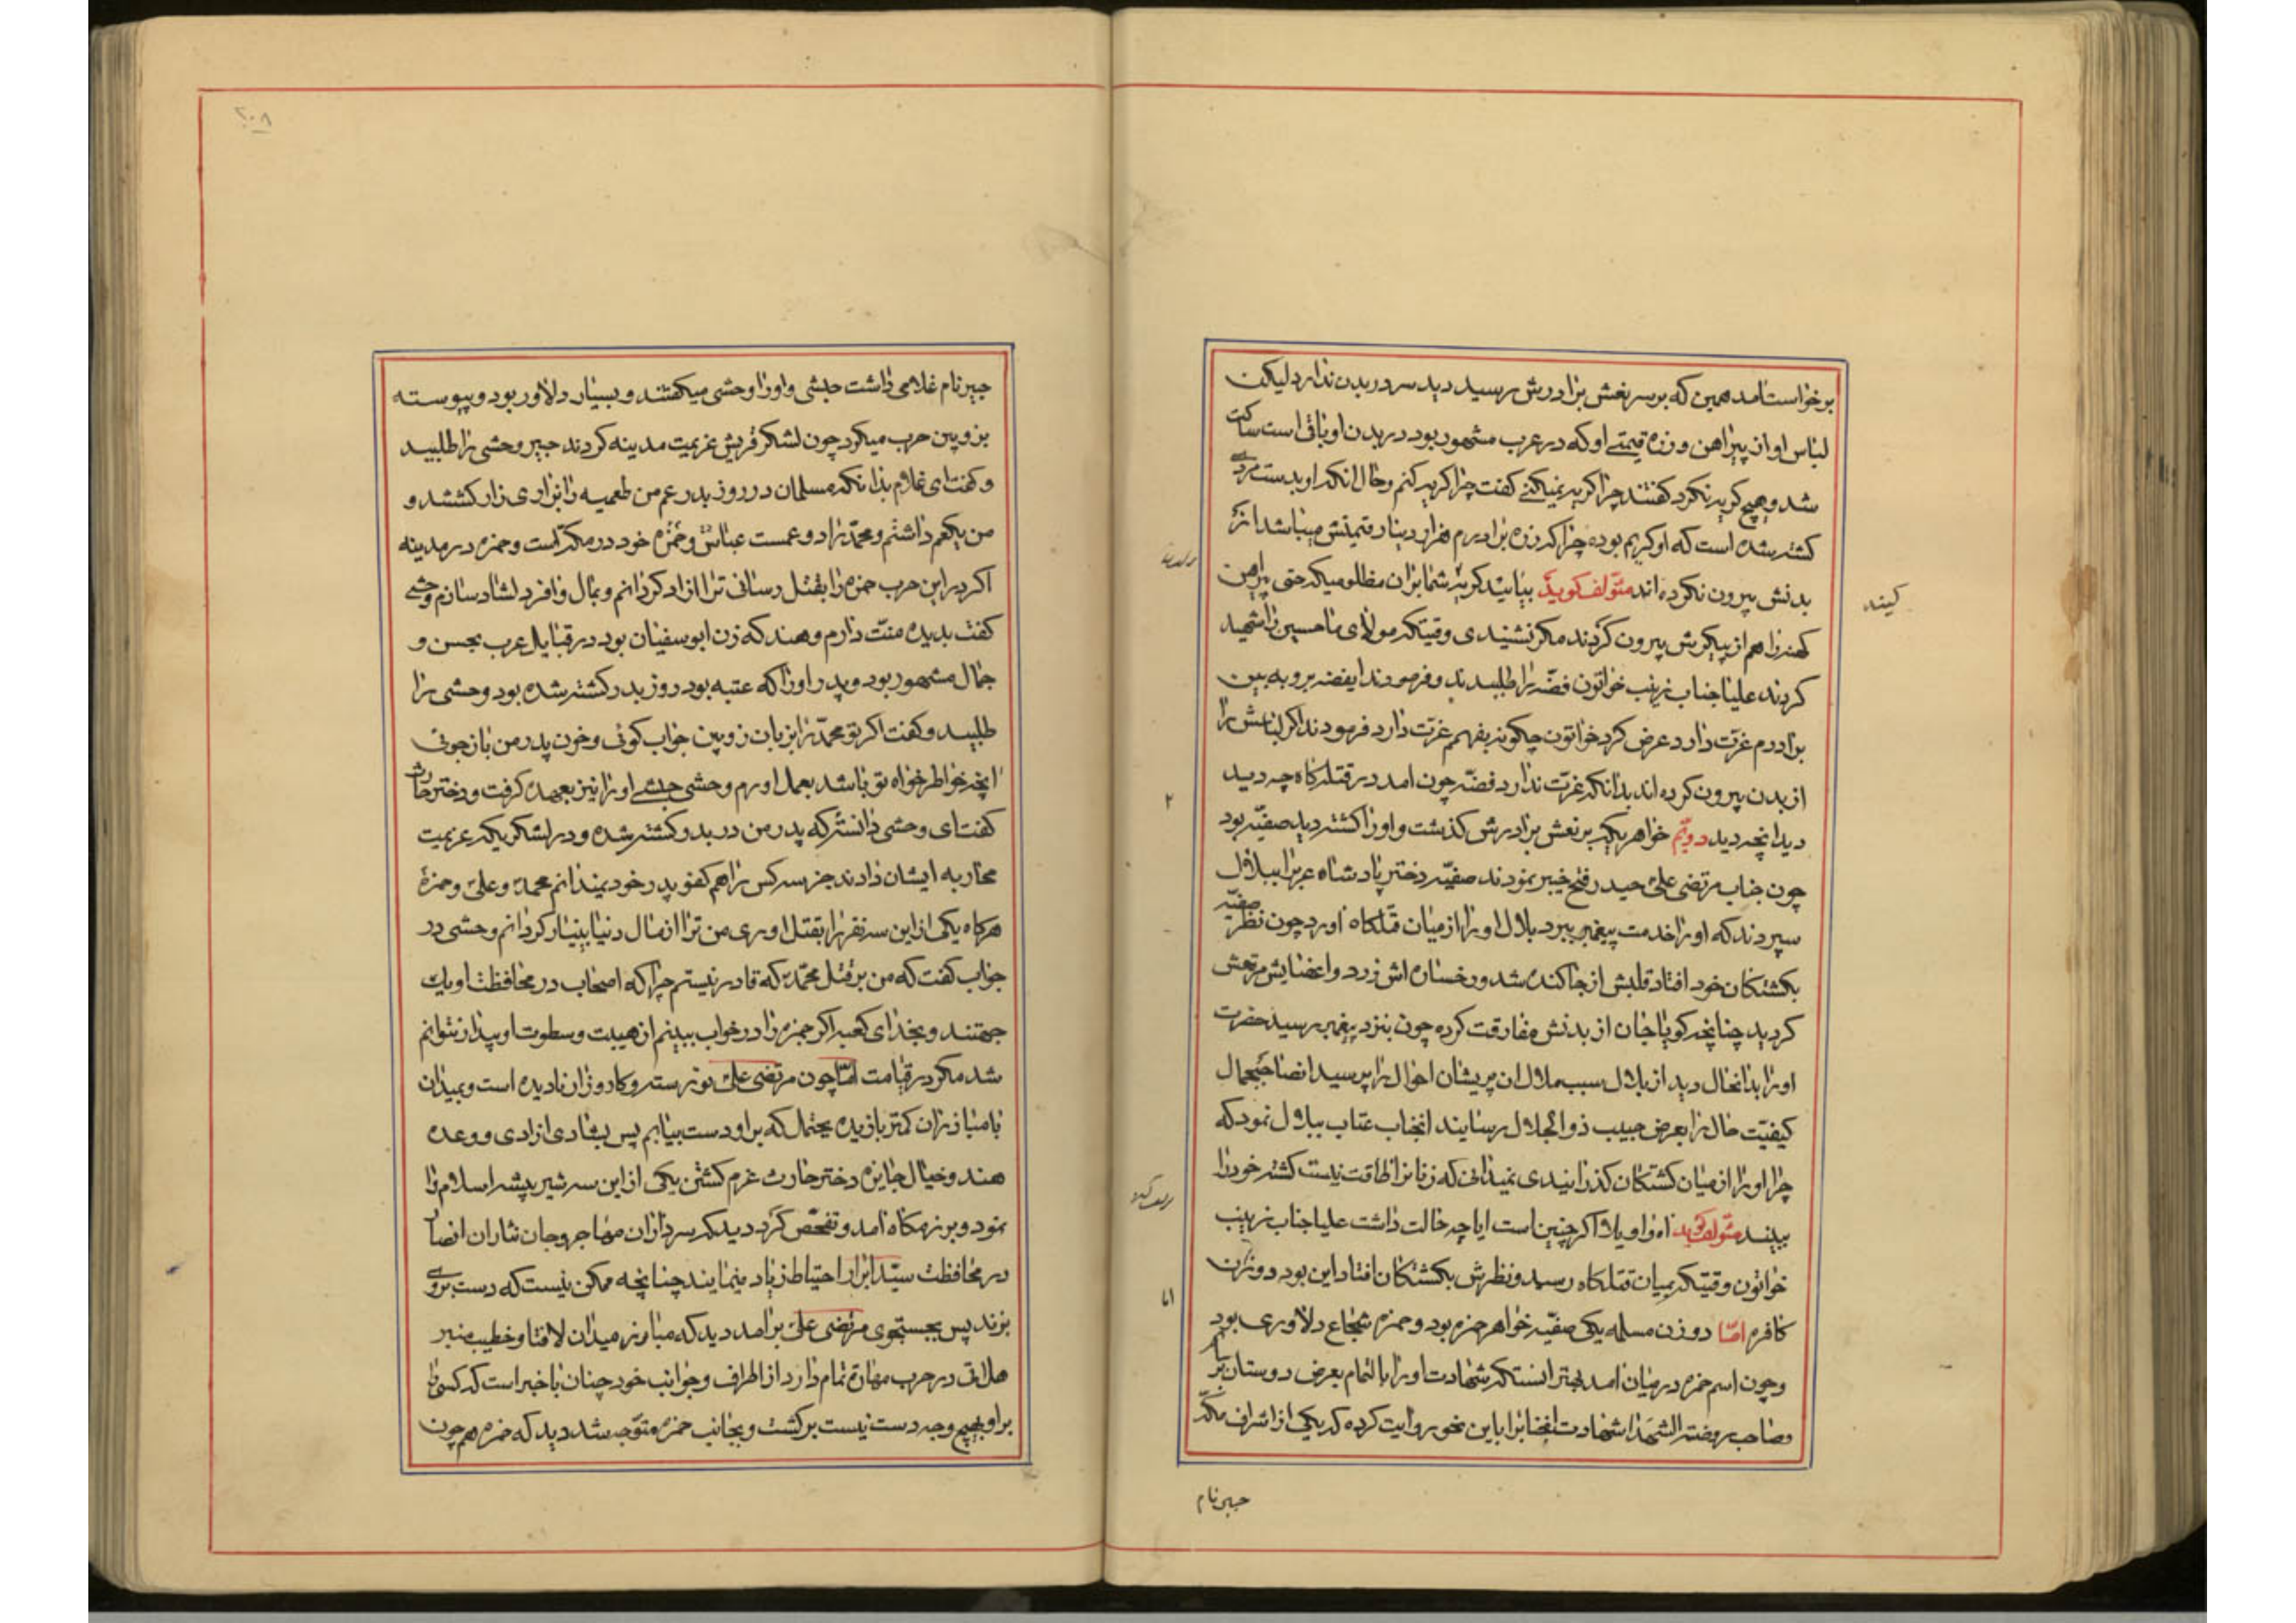 برخواست امد همین که بر سر نعش برادرش رسید دید سر در بدن ندارد لیکن
لباس او از پیراهن و زره قیمتے او که در عرب مشهور بود در بدن او باقی است ساکت
شد و هیچ کریه نکرد کفتند چرا کریه نمیکنے کفت چرا کریه کنم و حال انکه او بدست مردے
کشته شده است که او کریم بوده چرا که زره برادرم هزار دینار قیمتش میباشد از
بدنش بیرون نکرده اند مؤلف کوید بیائید کریه شما بر ان مظلومیکه حتی پیراهن
کهنه را هم از پیکرش بیرون کردند مکر نشنیدی وقتیکه مولای ما حسین را شهید
کردند علیا جناب زینب خواتون فضّه را طلبیدند و فرمودند ایفضه برو به بین
برادرم عزت دارد عرض کرد خواتون چکونه بفهمم عزت دارد فرمودند اکر لباسش را
از بدن بیرون کرده اند بدانکه عزت ندارد فضّه چون امد در قتلکاه چه دید
دید انچه دید دویّم خواهریکه بر نعش برادرش کذشت و او را کشته دید صفیّه بود
چون جناب مرتضی علی حیدر فتح خیبر نمودند صفیّه دختر پادشاه عرب را ببلال
سپردند که او را خدمت پیغمبر ببرد بلال او را از میان قتلکاه اورد چون نظر صفیّه
بکشتکان خود افتاد قلبش از جا کنده شد و رخساره اش زرد و اعضایش مرتعش
کردید چنانچه کویا جان از بدنش مفارقت کرده چون بنزد پیغمبر رسید حضرت
او را بدانحال دید از بلال سبب ملال ان پریشان احوال را پرسید انصاحبجمال
کیفیّت حال را بعرض حبیب ذوالجلال رسایند انجناب عتاب ببلال نمود که
چرا او را از میان کشتکان کذرانیدی نمیدانی که زنانرا طاقت نیست کشته خود را
ببینند مؤلف کوید اه واویلا اکر چنین است ایا چه حالت داشت علیا جناب زینب
خواتون وقتیکه بمیان قتلکاه رسید و نظرش بکشتکان افتاد این بود دو زن
کافره امّا دو زن مسلمه یکی صفیّه خواهر حمزه بود و حمزه شجاع دلاوری بود
و چون اسم حمزه در میان امد بهتر انستکه شهادت او را بالتمام بعرض دوستان برسانم
صاحب روضة الشهدا شهادت انجنابرا باین نحو روایت کرده که یکی از اشراف مکّه
جبیر نام
جبیر نام غلامی داشت حبشی و او را وحشی میکفتند و بسیار دلاور بود و پیوسته
بزوبین حرب میکرد چون لشکر قریش عزیمت مدینه کردند جبیر وحشی را طلبید
و کفت ای غلام بدانکه مسلمان در روز بدر عم من طعمیه را بزاری زار کشتند و
من یکعم داشتم و محمّد زاد و عمست عباس و حمزه خود در مکه است و حمزه در مدینه
اکر در این حرب حمزه را بقتل رسانی ترا ازاد کردانم و بمال وافر دلشاد سازم وحشے
کفت بدیده منّت دارم و هند که زن ابوسفیان بود در قبایل عرب بحسن و
جمال مشهور بود و پدر او را که عتبه بود روز بدر کشته شده بود وحشی را
طلبید و کفت اکر تو محمّد را بزبان زوبین جواب کوئی و خون پدر من باز جوئی
انچه خواطر خواه تو باشد بعمل اورم وحشی حبشے او را نیز بعهده کرفت و دختر حارث
کفت ای وحشی دانسته که پدر من در بدر کشته شده و در لشکریکه عزیمت
محاربه ایشان دارند جز سه کس را هم کفو پدر خود نمیدانم محمّد و علی و حمزه
هرکاه یکی از این سه نفر را بقتل اوری من ترا از مال دنیا بینیاز کردانم وحشی در
جواب کفت که من بر قتل محمّد که قادر نیستم چرا که اصحاب در محافظت او یک
جهتند و بخدای کعبه اکر حمزه را در خواب ببینم از هیبت و سطوت او بیدار نتوانم
شد مکر در قیامت امّا چون مرتضی علی نورسته و کارزاران نادیده است و بمیدان
با مبارزان کمتر بازیده یحتمل که بر او دست بیابم پس بشادی ازادی و وعده
هند و خیال جایزه دختر حارث عزم کشتن یکی از این سه شیر بیشه اسلام را
نمود و برزمکاه امد و تفحّص کرد دید که سرداران مهاجر و جان نثاران انصار
در محافظت سیّد ابرار احتیاط زیاد مینمایند چنانچه ممکن نیست که دست بروے
بزند پس بجستجوی مرتضی علی برامد دید که مبارز میدان لافتا و خطیب منبر
هل اتی در حرب مهارة تمام دارد از اطراف و جوانب خود چنان با خبر است که کسی را
بر او بهیچ وجه دست نیست برکشت و بجانب حمزه متوجّه شد دید که حمزه هم چون
۲۰۸